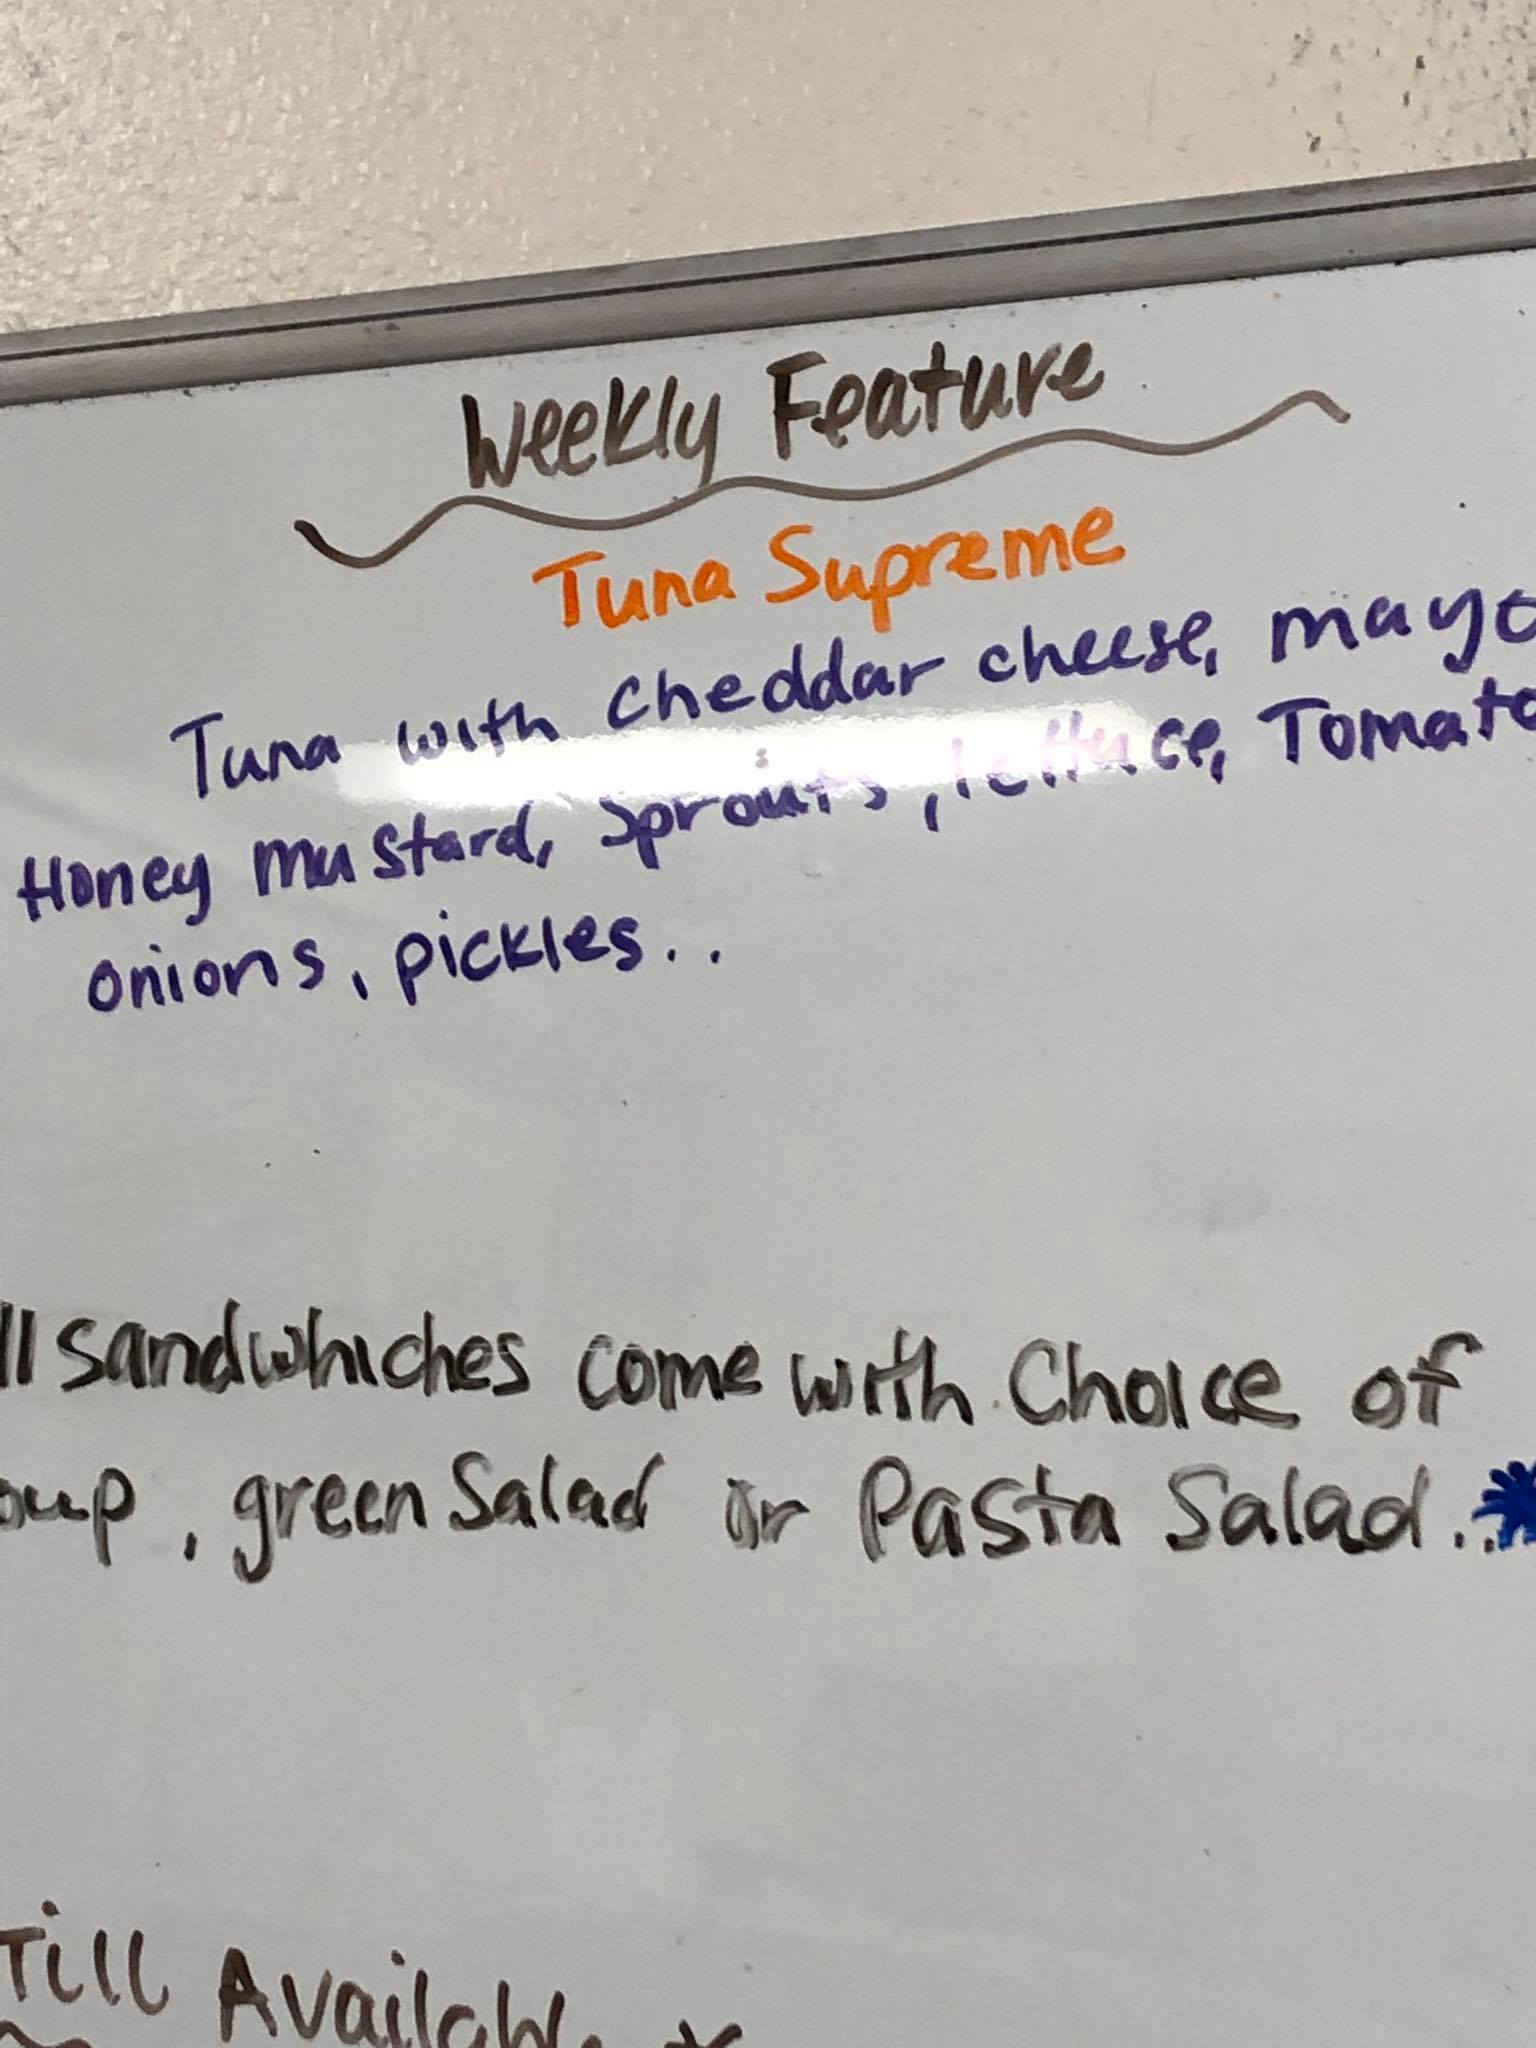 Weekly Feature
Tuna Supreme
Tuna with cheddar cheese, mayo
Honey mustard, Sprouts, lettuce, Tomato
onions, pickles..
ll sandwhiches come with Choice of
oup, green Salad or Pasta Salad..
Till Available *